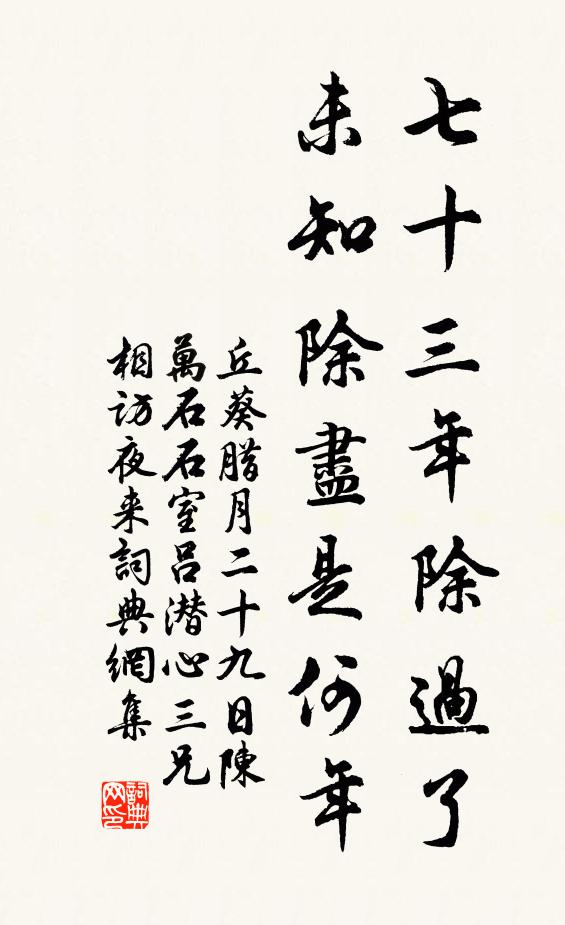 七十三年除過了
未知除盡是何年
丘葵腊月二十九日陳
萬石石室呂潜心三兄
相訪夜来詞典網集
詞典网印